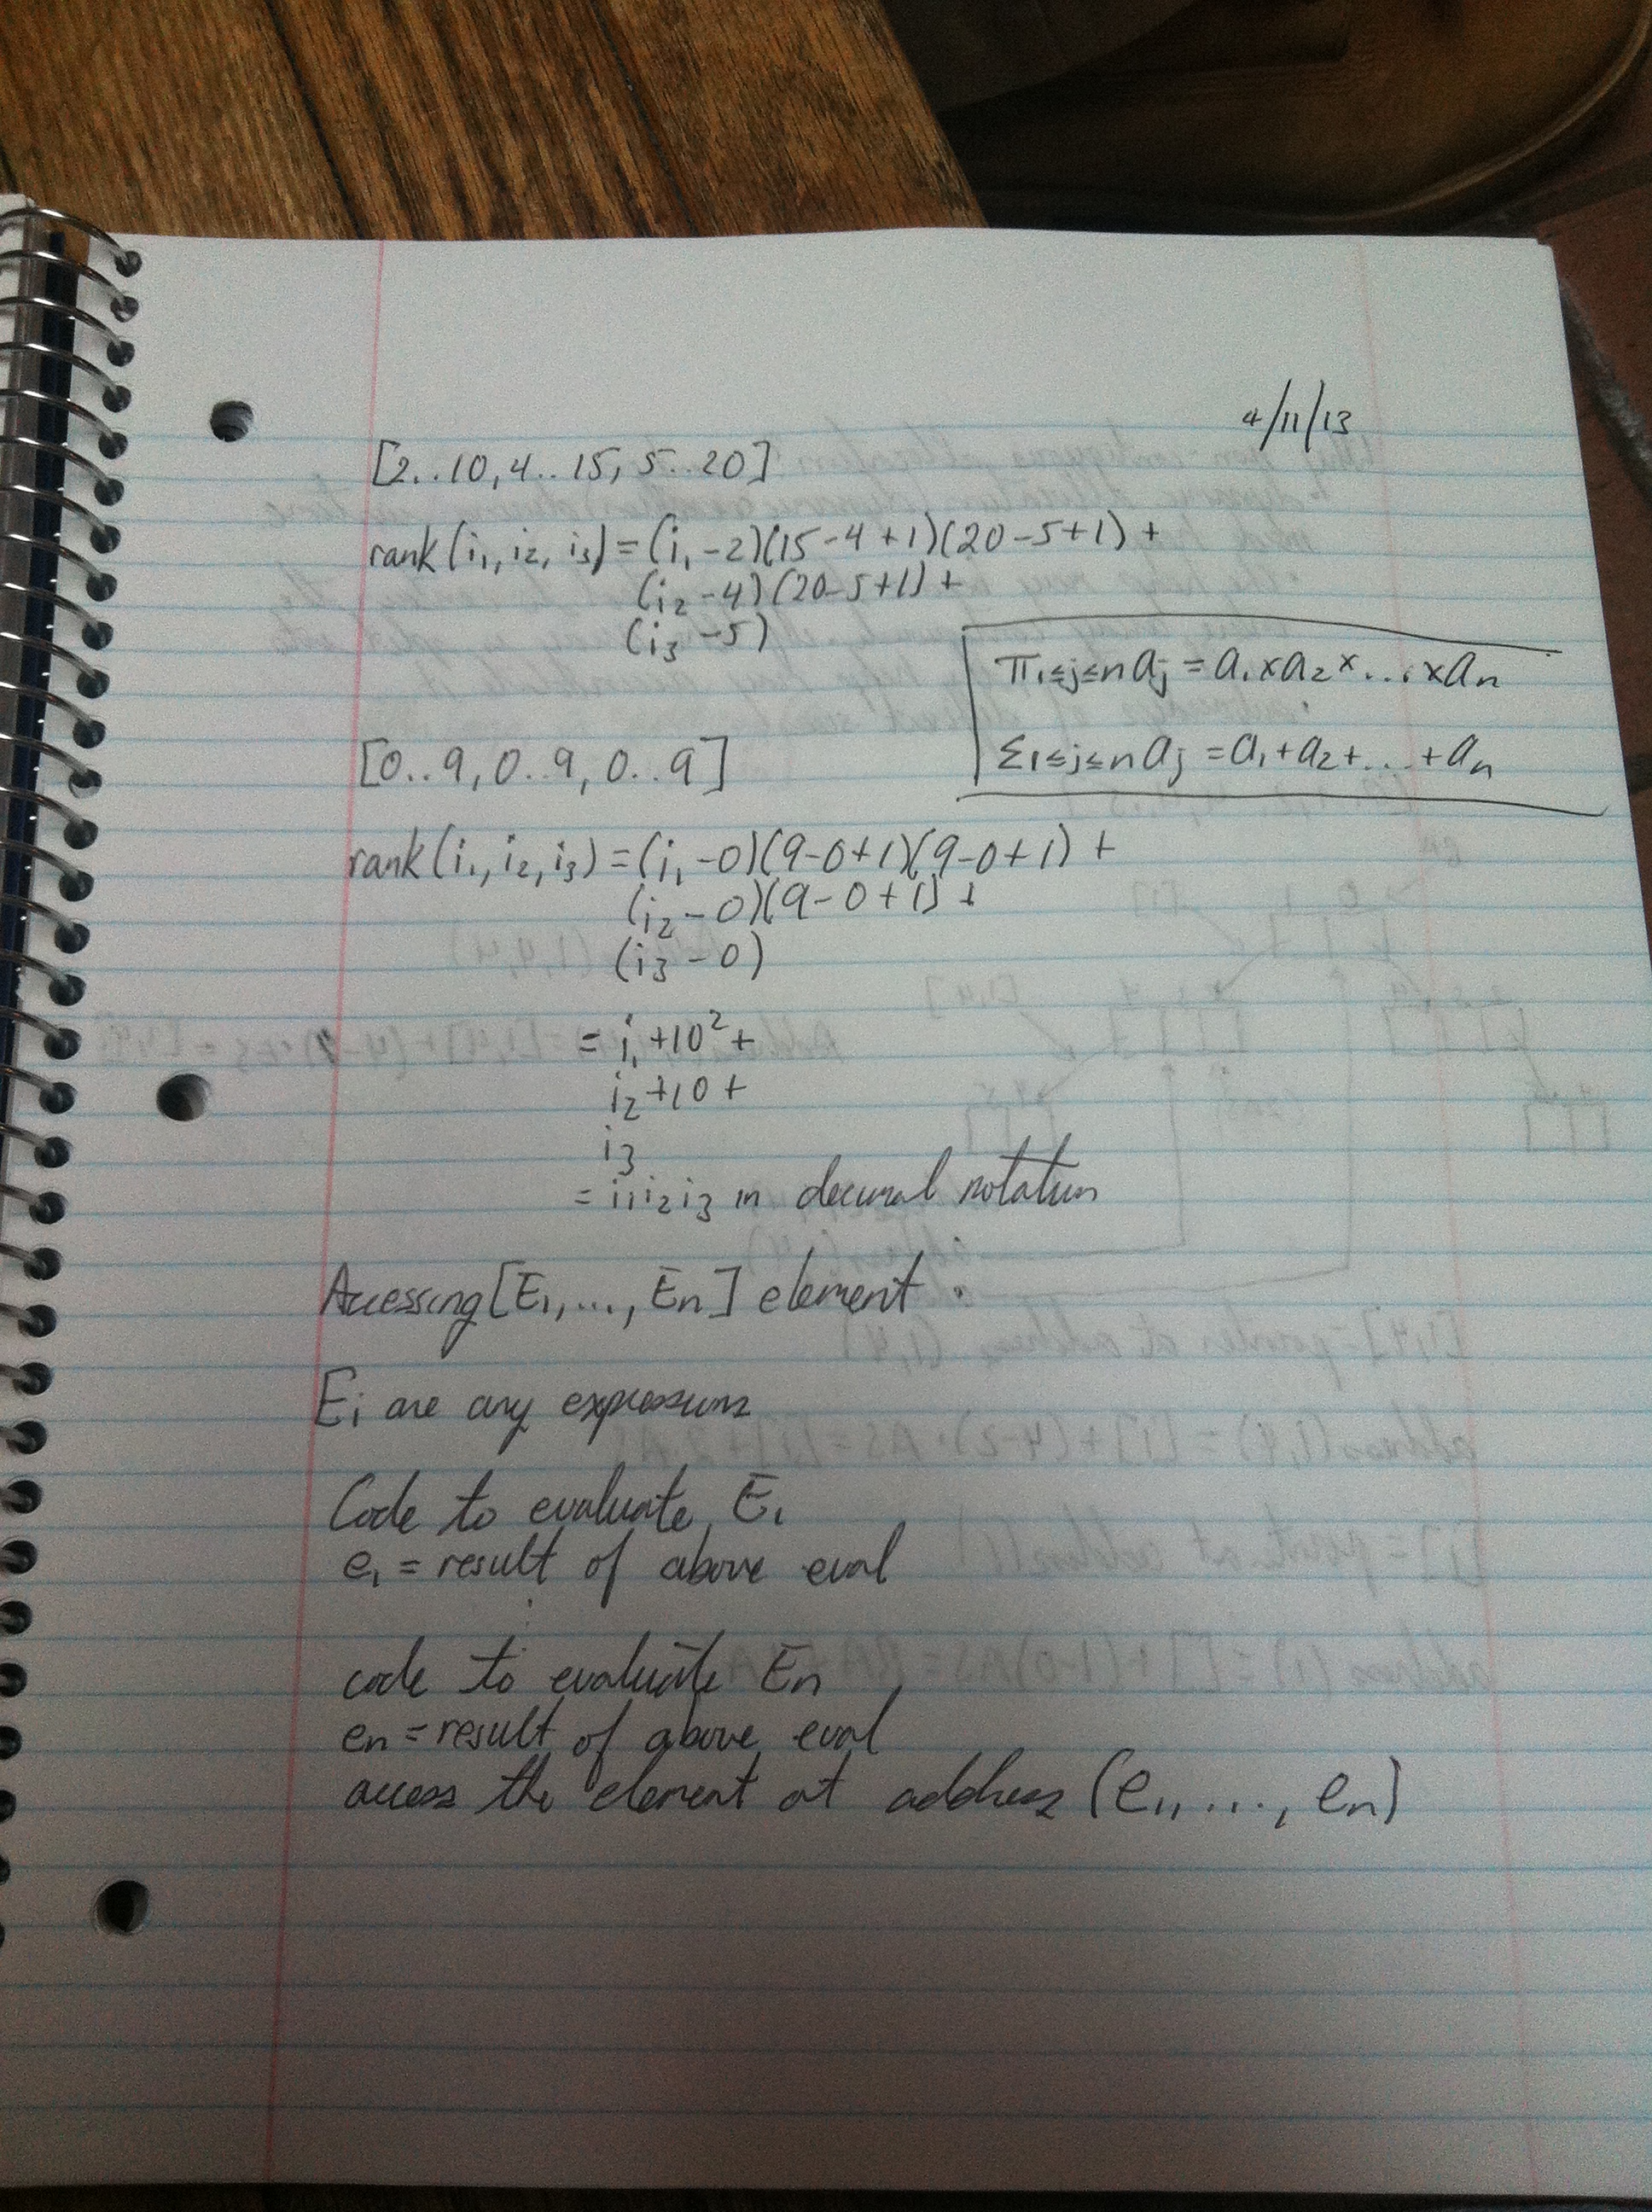 4/11/13
[2..10, 4..15, 5..20]
rank(i₁, i₂, i₃) = (i₁-2)(15-4+1)(20-5+1) +
(i₂-4)(20-5+1) +
(i₃-5)
π₁≤j≤n aj = a₁ x a₂ x ... x an
Σ1≤j≤n aj = a₁ + a₂ + ... + an
[0..9, 0..9, 0..9]
rank(i₁, i₂, i₃) = (i₁-0)(9-0+1)(9-0+1) +
(i₂-0)(9-0+1) +
(i₃-0)
= i₁+10² +
i₂+10 +
i₃
= i₁i₂i₃ in decimal notation
Accessing [E₁, ..., En] element .
Ei are any expressions
Code to evaluate E₁
e₁ = result of above eval
⋮
code to evaluate En
en = result of above eval
access the element at address (e₁, ..., en)